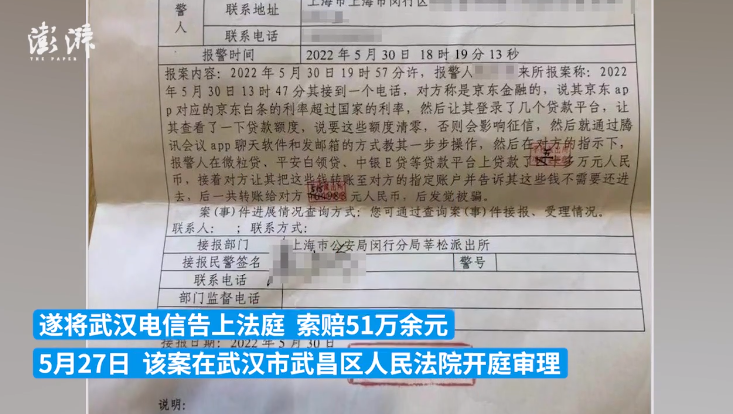 澎湃
THE PAPER
警
人
联系地址
上海市上海市闵行区
联系电话
报警时间
2022年5月30日 18时19分13秒
报案内容：2022年5月30日19时57分许，报警人 来所报案称：2022
年5月30日13时47分其接到一个电话，对方称是京东金融的，说其京东ap
p对应的京东白条的利率超过国家的利率，然后让其登录了几个贷款平台，让
其查看了一下贷款额度，说要这些额度清零，否则会影响征信，然后就通过腾
讯会议app聊天软件和发邮箱的方式教其一步步操作，然后在对方的指示下，
报警人在微粒贷、平安白领贷、中银E贷等贷款平台上贷款了 多万元人民
币，接着对方让其把这些钱转账至对方的指定账户并告诉其这些钱不需要还进
去，后一共转账给对方 元人民币，后发觉被骗。
案(事)件进展情况查询方式：您可通过查询案(事)件接报、受理情况。
联系人： ；联系方式：
接报部门
上海市公安局闵行分局莘松派出所
接报民警签名
警号
联系电话
部门监督电话
遂将武汉电信告上法庭 索赔51万余元
接报日期：2022年5月30日
5月27日 该案在武汉市武昌区人民法院开庭审理
说明：